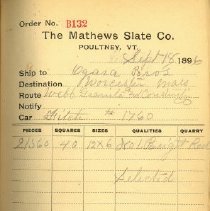 Order No. B132
The Mathews Slate Co.
POULTNEY, VT.
Sept 18 1896
Ship to Bros
Destination Worcester Mass
Route Webb Granite and Const Co
Notify
Car Fitch # 1760
PIECES SQUARES SIZES QUALITIES QUARRY
21360 40 12x6
Selected